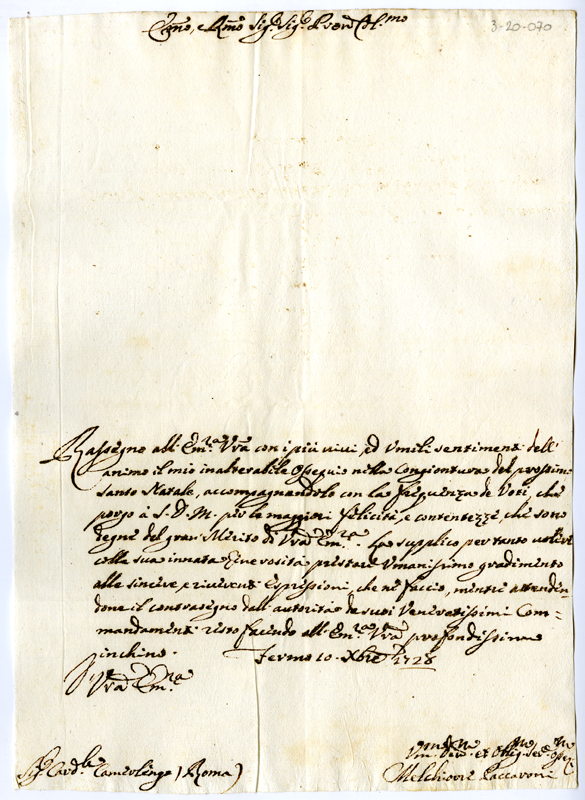 Em̃o, e Rm̃o Sig.r Sig.r Pron Col.mo
3-20-070
Rassegno all' Em.za Vr̃a con i più vivi, ed umili sentimenti dell'
animo il mio inalterabile ossequio nella congiontura del prossimo
Santo Natale, accompagnandolo con la frequenza de Voti, che
porgo à S. D. M. per le maggiori felicità, e contentezze, che sono
degne del gran Merito di Vr̃a Em.za La supplico per tanto volere
colla sua innata Generosità prestare Umanissimo gradimento
alle sincere, e riverenti Espressioni, che ne faccio, mentre attenden=
done il contrasegno dall' autorità de suoi Veneratissimi Com=
mandamenti resto facendo all' Em.za Vr̃a profondissimo
inchino. Fermo 10. Xbre 1728
Vr̃a Em.za
Sig. Card.le Camerlengo (Roma)
Um. Dev. et Oblig. Ser. Osseq.
Melchiorre Paccaroni